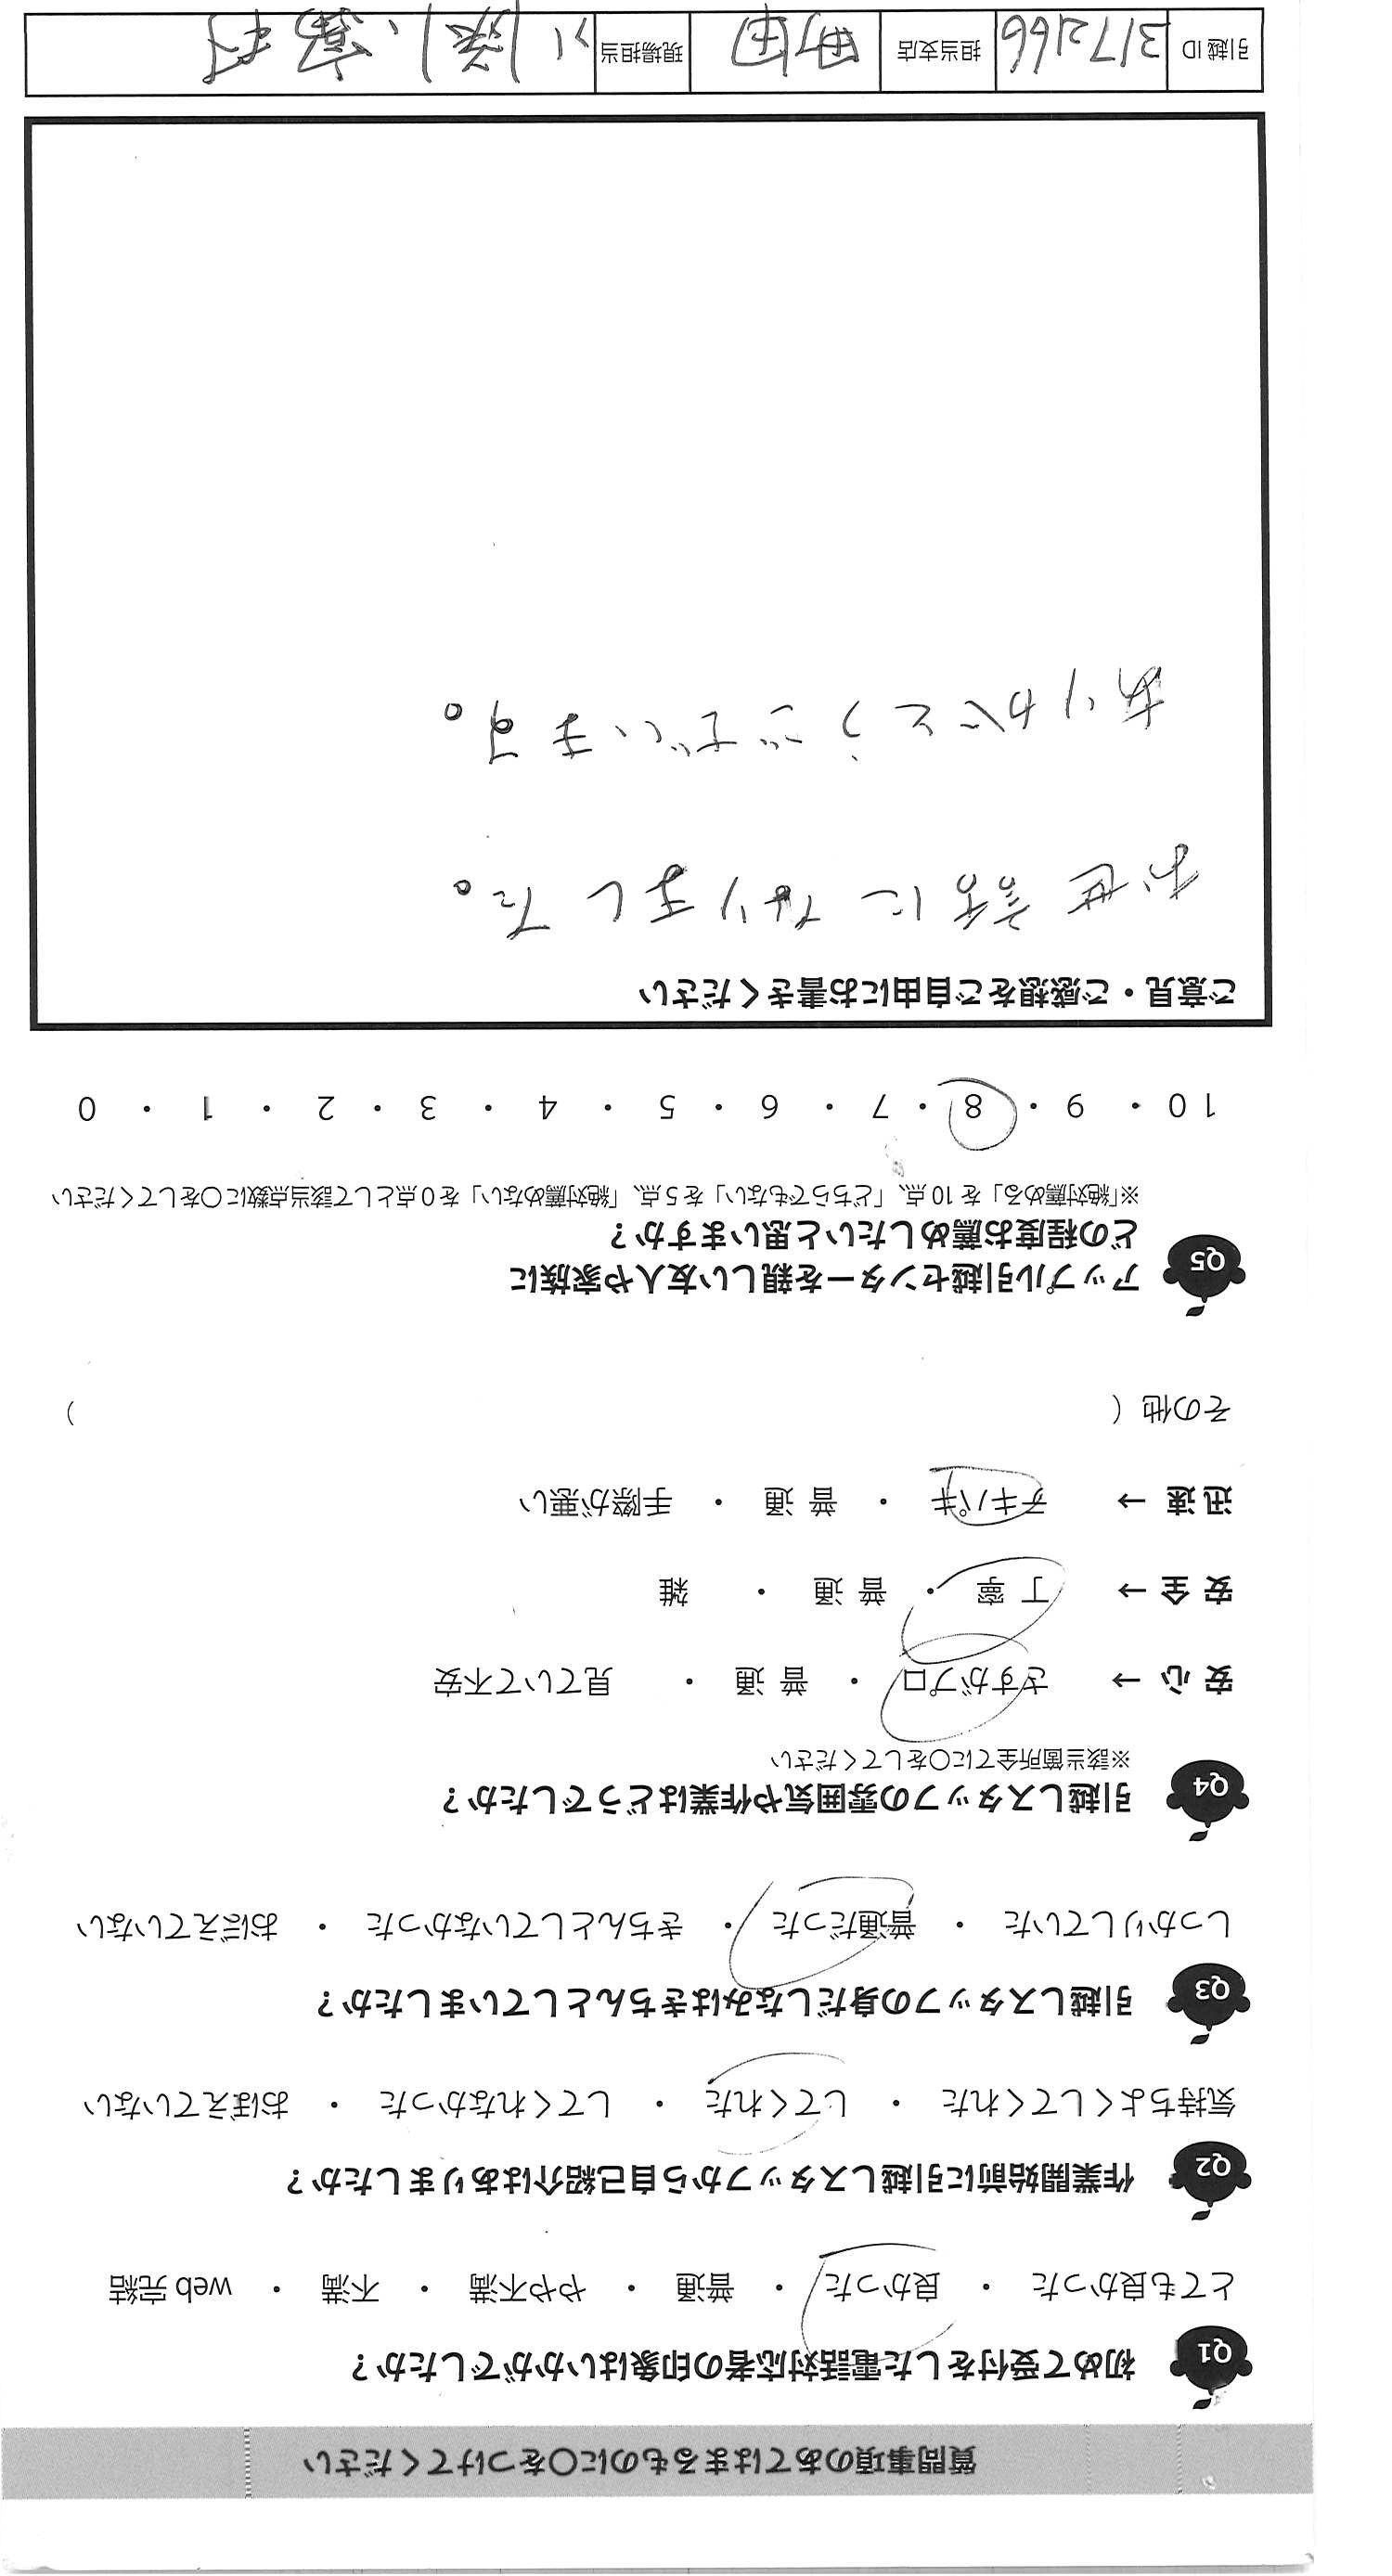 質問事項のあてはまるものに○をつけてください
Q1 初めて受付をした電話対応者の印象はいかがでしたか？
とても良かった ・ 良かった ・ 普通 ・ やや不満 ・ 不満 ・ web 完結
Q2 作業開始前に引越しスタッフから自己紹介はありましたか？
気持ちよくしてくれた ・ してくれた ・ してくれなかった ・ おぼえていない
Q3 引越しスタッフの身だしなみはきちんとしていましたか？
しっかりしていた ・ 普通だった ・ きちんとしていなかった ・ おぼえていない
Q4 引越しスタッフの雰囲気や作業はどうでしたか？
※該当箇所全てに○をしてください
安 心 → さすがプロ ・ 普 通 ・ 見ていて不安
安 全 → 丁 寧 ・ 普 通 ・ 雑
迅 速 → テキパキ ・ 普 通 ・ 手際が悪い
その他（ ）
Q5 アップル引越センターを親しい友人や家族に
どの程度お薦めしたいと思いますか？
※「絶対薦める」を 10 点、「どちらでもない」を 5 点、「絶対薦めない」を 0 点として該当点数に○をしてください
10 ・ 9 ・ 8 ・ 7 ・ 6 ・ 5 ・ 4 ・ 3 ・ 2 ・ 1 ・ 0
ご意見・ご感想をご自由にお書きください
お世話になりました。
ありがとうございます。
引越 ID 3172166 担当支店 町田 現場担当